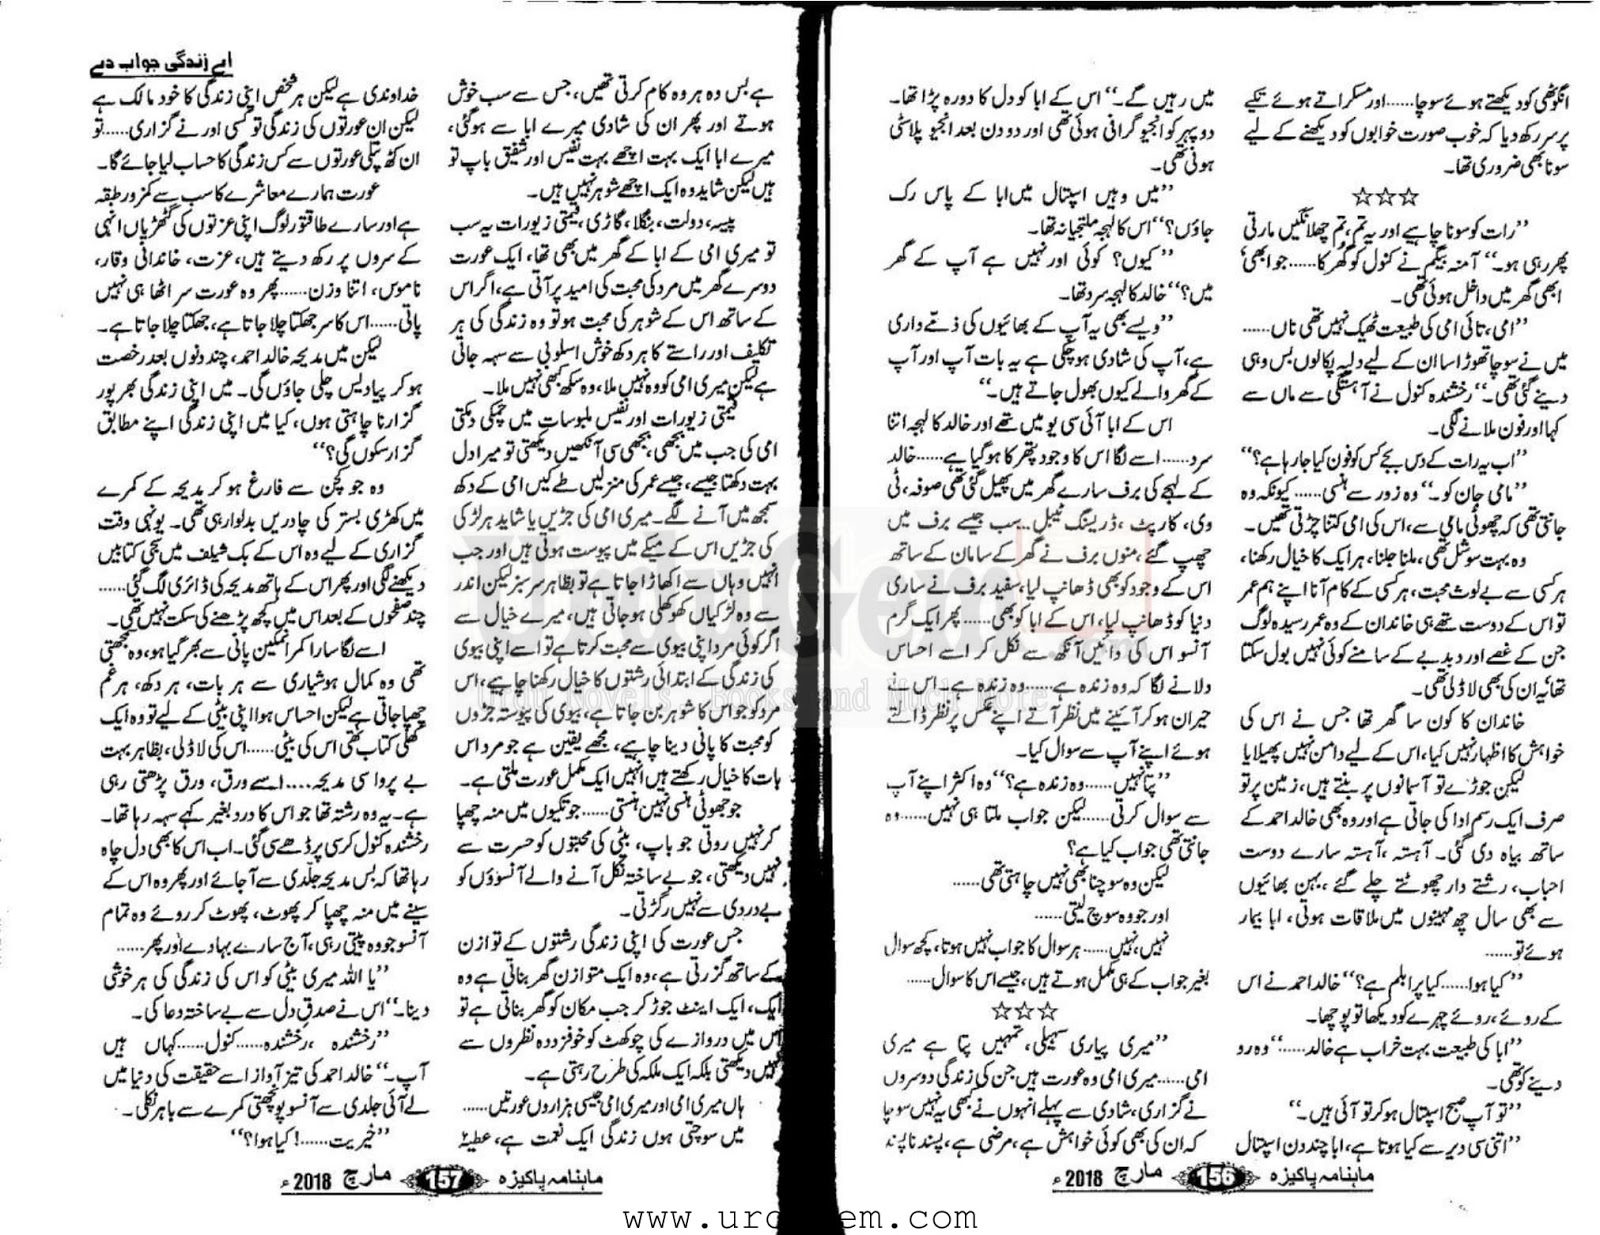 انگوٹھی کو دیکھتے ہوئے سوچا...... اور مسکراتے ہوئے تکیے
پر سر رکھ دیا کہ خوب صورت خوابوں کو دیکھنے کے لیے
سونا بھی ضروری تھا۔
☆☆☆
’’رات کو سونا چاہیے اور یہ تم، تم چھلانگیں مارتی
پھر رہی ہو۔‘‘ آمنہ بیگم نے کنول کو گھُرکا...... جو ابھی
ابھی گھر میں داخل ہوئی تھی۔
’’امی، تائی امی کی طبیعت ٹھیک نہیں تھی ناں......
میں نے سوچا تھوڑا سا ان کے لیے دلیہ پکا لوں بس وہی
دینے گئی تھی۔‘‘ رخشندہ کنول نے آہستگی سے ماں سے
کہا اور فون ملانے لگی۔
’’اب یہ رات کے دس بجے کس کو فون کیا جا رہا ہے؟‘‘
’’مامی جان کو۔‘‘ وہ زور سے ہنسی...... کیونکہ وہ
جانتی تھی کہ چھوٹی مامی سے، اس کی امی کتنا چڑتی تھیں۔
وہ بہت سوشل تھی، ملنا جلنا، ہر ایک کا خیال رکھنا،
ہر کسی سے بے لوث محبت، ہر کسی کے کام آنا اپنے ہم عمر
تو اس کے دوست تھے ہی خاندان کے وہ عمر رسیدہ لوگ
جن کے غصے اور دبدبے کے سامنے کوئی نہیں بول سکتا
تھا یہ ان کی بھی لاڈلی تھی۔
خاندان کا کون سا گھر تھا جس نے اس کی
خواہش کا اظہار نہیں کیا، اس کے لیے دامن نہیں پھیلایا
لیکن جوڑے تو آسمانوں پر بنتے ہیں، زمین پر تو
صرف ایک رسم ادا کی جاتی ہے اور وہ بھی خالد احمد کے
ساتھ بیاہ دی گئی۔ آہستہ، آہستہ سارے دوست
احباب، رشتے دار چھوٹتے چلے گئے، بہن بھائیوں
سے بھی سال چھ مہینوں میں ملاقات ہوتی، ابا بیمار
ہوئے تو......
’’کیا ہوا...... کیا پرابلم ہے؟‘‘ خالد احمد نے اس
کے روئے، روئے چہرے کو دیکھا تو پوچھا۔
’’ابا کی طبیعت بہت خراب ہے خالد......‘‘ وہ رو
دینے کو تھی۔
’’تو آپ صبح اسپتال ہو کر تو آئی ہیں۔‘‘
’’اتنی سی دیر سے کیا ہوتا ہے، ابا چند دن اسپتال
میں رہیں گے۔‘‘ اس کے ابا کو دل کا دورہ پڑا تھا۔
دوپہر کو انجیوگرافی ہوئی تھی اور دو دن بعد انجیو پلاسٹی
ہونی تھی۔
’’میں وہیں اسپتال میں ابا کے پاس رک
جاؤں؟‘‘ اس کا لہجہ ملتجیانہ تھا۔
’’کیوں؟ کوئی اور نہیں ہے آپ کے گھر
میں؟‘‘ خالد کا لہجہ سرد تھا۔
’’ویسے بھی یہ آپ کے بھائیوں کی ذمے داری
ہے، آپ کی شادی ہو چکی ہے یہ بات آپ اور آپ
کے گھر والے کیوں بھول جاتے ہیں۔‘‘
اس کے ابا آئی سی یو میں تھے اور خالد کا لہجہ اتنا
سرد...... اسے لگا اس کا وجود پتھر کا ہو گیا ہے...... خالد
کے لہجے کی برف سارے گھر میں پھیل گئی تھی صوفہ، ٹی
وی، کارپٹ، ڈریسنگ ٹیبل... سب جیسے برف میں
چھپ گئے، منوں برف نے گھر کے سامان کے ساتھ
اس کے وجود کو بھی ڈھانپ لیا، سفید برف نے ساری
دنیا کو ڈھانپ لیا، اس کے ابا کو بھی...... پھر ایک گرم
آنسو اس کی دائیں آنکھ سے نکل کر اسے احساس
دلانے لگا کہ وہ زندہ ہے...... وہ زندہ ہے۔ اس نے
حیران ہو کر آئینے میں نظر آتے اپنے عکس پر نظر ڈالتے
ہوئے اپنے آپ سے سوال کیا۔
’’پتا نہیں...... وہ زندہ ہے؟‘‘ وہ اکثر اپنے آپ
سے سوال کرتی...... لیکن جواب ملتا ہی نہیں...... وہ
جانتی تھی جواب کیا ہے؟
لیکن وہ سوچنا بھی نہیں چاہتی تھی......
اور جو وہ سوچ لیتی......
نہیں، نہیں...... ہر سوال کا جواب نہیں ہوتا، کچھ سوال
بغیر جواب کے ہی مکمل ہوتے ہیں، جیسے اس کا سوال......
☆☆☆
’’میری پیاری سہیلی، تمہیں پتا ہے میری
امی...... میری امی وہ عورت ہیں جن کی زندگی دوسروں
نے گزاری، شادی سے پہلے انہوں نے کبھی یہ نہیں سوچا
کہ ان کی بھی کوئی خواہش ہے، مرضی ہے، پسند ناپسند
ماہنامہ پاکیزہ 156 مارچ 2018ء
اے زندگی جواب دے
ہے بس وہ ہر وہ کام کرتی تھیں، جس سے سب خوش
ہوتے اور پھر ان کی شادی میرے ابا سے ہو گئی،
میرے ابا ایک بہت اچھے بہت نفیس اور شفیق باپ تو
ہیں لیکن شاید وہ ایک اچھے شوہر نہیں ہیں۔
پیسہ، دولت، بنگلا، گاڑی، قیمتی زیورات یہ سب
تو میری امی کے ابا کے گھر میں بھی تھا، ایک عورت
دوسرے گھر میں مرد کی محبت کی امید پر آتی ہے، اگر اس
کے ساتھ اس کے شوہر کی محبت ہو تو وہ زندگی کی ہر
تکلیف اور راستے کا ہر دکھ خوش اسلوبی سے سہہ جاتی
ہے لیکن میری امی کو وہ نہیں ملا، وہ سکھ کبھی نہیں ملا۔
قیمتی زیورات اور نفیس ملبوسات میں چمکتی دمکتی
امی کی جب میں بجھی، بجھی سی آنکھیں دیکھتی تو میرا دل
بہت دکھتا جیسے، جیسے عمر کی منزلیں طے کیں امی کے دکھ
سمجھ میں آنے لگے۔ میری امی کی جڑیں یا شاید ہر لڑکی
کی جڑیں اس کے میکے میں پیوست ہوتی ہیں اور جب
انہیں وہاں سے اکھاڑا جاتا ہے تو بظاہر سرسبز لیکن اندر
سے وہ لڑکیاں کھوکھلی ہو جاتی ہیں، میرے خیال سے
اگر کوئی مرد اپنی بیوی سے محبت کرتا ہے تو اسے اپنی بیوی
کی زندگی کے ابتدائی رشتوں کا خیال رکھنا چاہیے، اس
مرد کو جو اس کا شوہر بن جاتا ہے، بیوی کی پیوستہ جڑوں
کو محبت کا پانی دینا چاہیے، مجھے یقین ہے جو مرد اس
بات کا خیال رکھتے ہیں انہیں ایک مکمل عورت ملتی ہے۔
جو جھوٹی ہنسی نہیں ہنستی...... جو تکیوں میں منہ چھپا
کر نہیں روتی جو باپ، بیٹی کی محبتوں کو حسرت سے
نہیں دیکھتی، جو بے ساختہ نکل آنے والے آنسوؤں کو
بے دردی سے نہیں رگڑتی۔
جس عورت کی اپنی زندگی رشتوں کے توازن
کے ساتھ گزرتی ہے، وہ ایک متوازن گھر بناتی ہے وہ
ایک، ایک اینٹ جوڑ کر جب مکان کو گھر بناتی ہے تو
اس میں دروازے کی چوکھٹ کو خوفزدہ نظروں سے
نہیں دیکھتی بلکہ ایک ملکہ کی طرح رہتی ہے۔
ہاں میری امی اور میری امی جیسی ہزاروں عورتیں......
میں سوچتی ہوں زندگی ایک نعمت ہے، عطیہ
خداوندی ہے لیکن ہر شخص اپنی زندگی کا خود مالک ہے
لیکن ان عورتوں کی زندگی تو کسی اور نے گزاری...... تو
ان کٹھ پتلی عورتوں سے کس زندگی کا حساب لیا جائے گا۔
عورت ہمارے معاشرے کا سب سے کمزور طبقہ
ہے اور سارے طاقتور لوگ اپنی عزتوں کی گٹھڑیاں انہی
کے سروں پر رکھ دیتے ہیں، عزت، خاندانی وقار،
ناموس، اتنا وزن...... پھر وہ عورت سر اٹھا ہی نہیں
پاتی...... اس کا سر جھکتا چلا جاتا ہے، جھکتا چلا جاتا ہے۔
لیکن میں مدیحہ خالد احمد، چند دنوں بعد رخصت
ہو کر پیا دیس چلی جاؤں گی۔ میں اپنی زندگی بھرپور
گزارنا چاہتی ہوں، کیا میں اپنی زندگی اپنے مطابق
گزار سکوں گی؟‘‘
وہ جو کچن سے فارغ ہو کر مدیحہ کے کمرے
میں کھڑی بستر کی چادریں بدلوا رہی تھی۔ یونہی وقت
گزاری کے لیے وہ اس کے بک شیلف میں سجی کتابیں
دیکھنے لگی اور پھر اس کے ہاتھ مدیحہ کی ڈائری لگ گئی......
چند صفحوں کے بعد اس میں کچھ پڑھنے کی سکت نہیں تھی۔
اسے لگا سارا کمرا نمکین پانی سے بھر گیا ہو، وہ سمجھتی
تھی وہ کمال ہوشیاری سے ہر بات، ہر دکھ، ہر غم
چھپا جاتی ہے لیکن احساس ہوا اپنی بیٹی کے لیے تو وہ ایک
کھلی کتاب تھی اس کی بیٹی...... اس کی لاڈلی، بظاہر بہت
بے پروا سی مدیحہ.... اسے ورق، ورق پڑھتی رہی
ہے۔ یہ وہ رشتہ تھا جو اس کا درد بغیر کہے سہہ رہا تھا۔
رخشندہ کنول کرسی پر ڈھے سی گئی۔ اب اس کا بھی دل چاہ
رہا تھا کہ بس مدیحہ جلدی سے آ جائے اور پھر وہ اس کے
سینے میں منہ چھپا کر پھوٹ، پھوٹ کر روئے وہ تمام
آنسو جو وہ پیتی رہی، آج سارے بہا دے اور پھر......
’’یا اللہ میری بیٹی کو اس کی زندگی کی ہر خوشی
دینا۔‘‘ اس نے صدقِ دل سے بے ساختہ دعا کی۔
’’رخشندہ، رخشندہ...... کنول...... کہاں ہیں
آپ۔‘‘ خالد احمد کی تیز آواز اسے حقیقت کی دنیا میں
لے آئی جلدی سے آنسو پونچھتی کمرے سے باہر نکلی۔
’’خیریت......! کیا ہوا؟‘‘
ماہنامہ پاکیزہ 157 مارچ 2018ء
UrduGem
Urdu Novels, Books and Much More